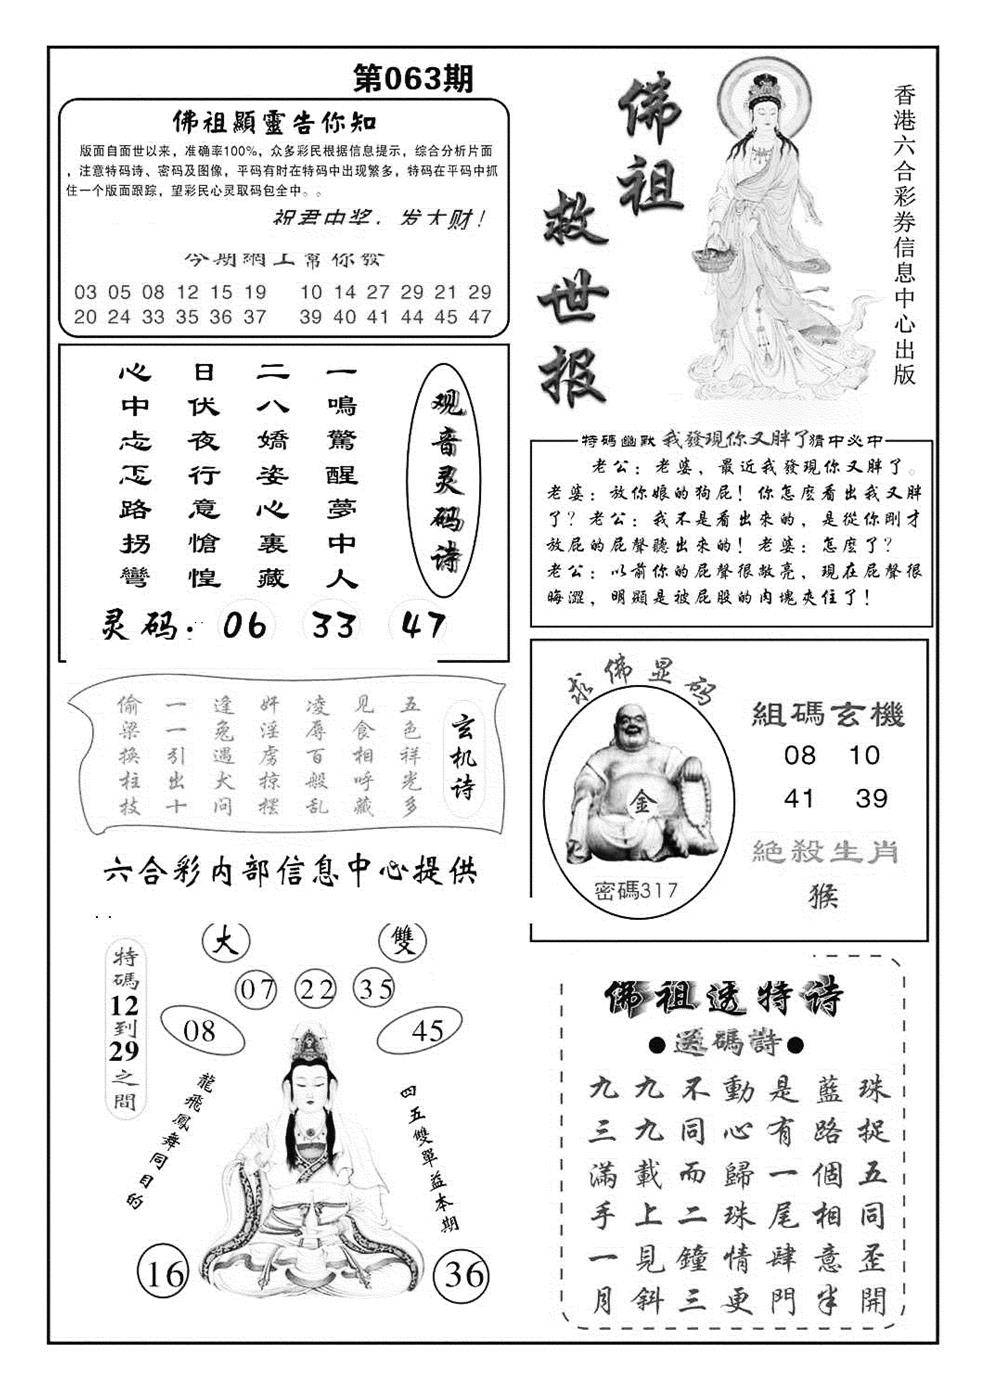 第063期
佛祖顯靈告你知
版面自面世以来，准确率100%，众多彩民根据信息提示，综合分析片面
，注意特码诗、密码及图像，平码有时在特码中出现繁多，特码在平码中抓
住一个版面跟踪，望彩民心灵取码包全中。。
祝君中奖，发大财！
今期網工幫你發
03 05 08 12 15 19 10 14 27 29 21 29
20 24 33 35 36 37 39 40 41 44 45 47
佛祖
救世报
香港六合彩券信息中心出版
观音灵码诗
一鳴驚醒夢中人
二八嬌姿心裏藏
日伏夜行意愴惶
心中忐忑路拐彎
灵码：06 33 47
特碼幽默 我發現你又胖了 猜中必中
老公：老婆，最近我發現你又胖了。
老婆：放你娘的狗屁！你怎麼看出我又胖
了？老公：我不是看出來的，是從你剛才
放屁的屁聲聽出來的！老婆：怎麼了？
老公：以前你的屁聲很敞亮，現在屁聲很
晦澀，明顯是被屁股的肉塊夾住了！
玄机诗
五色祥光多
见食相呼藏
凌辱百般乱
奸淫虏掠摆
逢兔遇犬问
一一引出十
偷梁换柱技
六合彩内部信息中心提供
求佛显码
金
密碼317
組碼玄機
08 10
41 39
絕殺生肖
猴
特碼12到29之間
大 雙
07 22 35
08 45
龍飛鳳舞同目的
四五雙單益本期
16 36
佛祖透特诗
●送碼詩●
珠捉五同歪開
藍路個相意半
是有一尾肆門
動心歸珠情更
不同而二鐘三
九九載上見斜
九三滿手一月